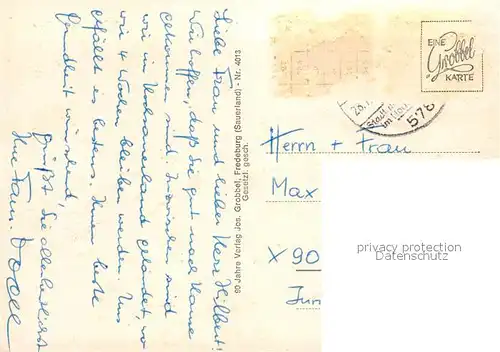 Liebe Frau und lieber Herr Hilbert!
Wir hoffen, daß Sie gut nach Hause
gekommen sind. Inzwischen sind
wir in gelandet, wo
wir 4 Wochen bleiben werden. Uns
gefällt es bestens. Ihnen beste
Gesundheit wünschend,
grüßt Sie allerherzlichst
Ihre Fam.
80 Jahre Verlag Jos. Grobbel, Fredeburg (Sauerland) - Nr. 4013
Gesetzl. gesch.
EINE
Grobbel
KARTE
Herrn + Frau
Max
X 90
privacy protection
Datenschutz